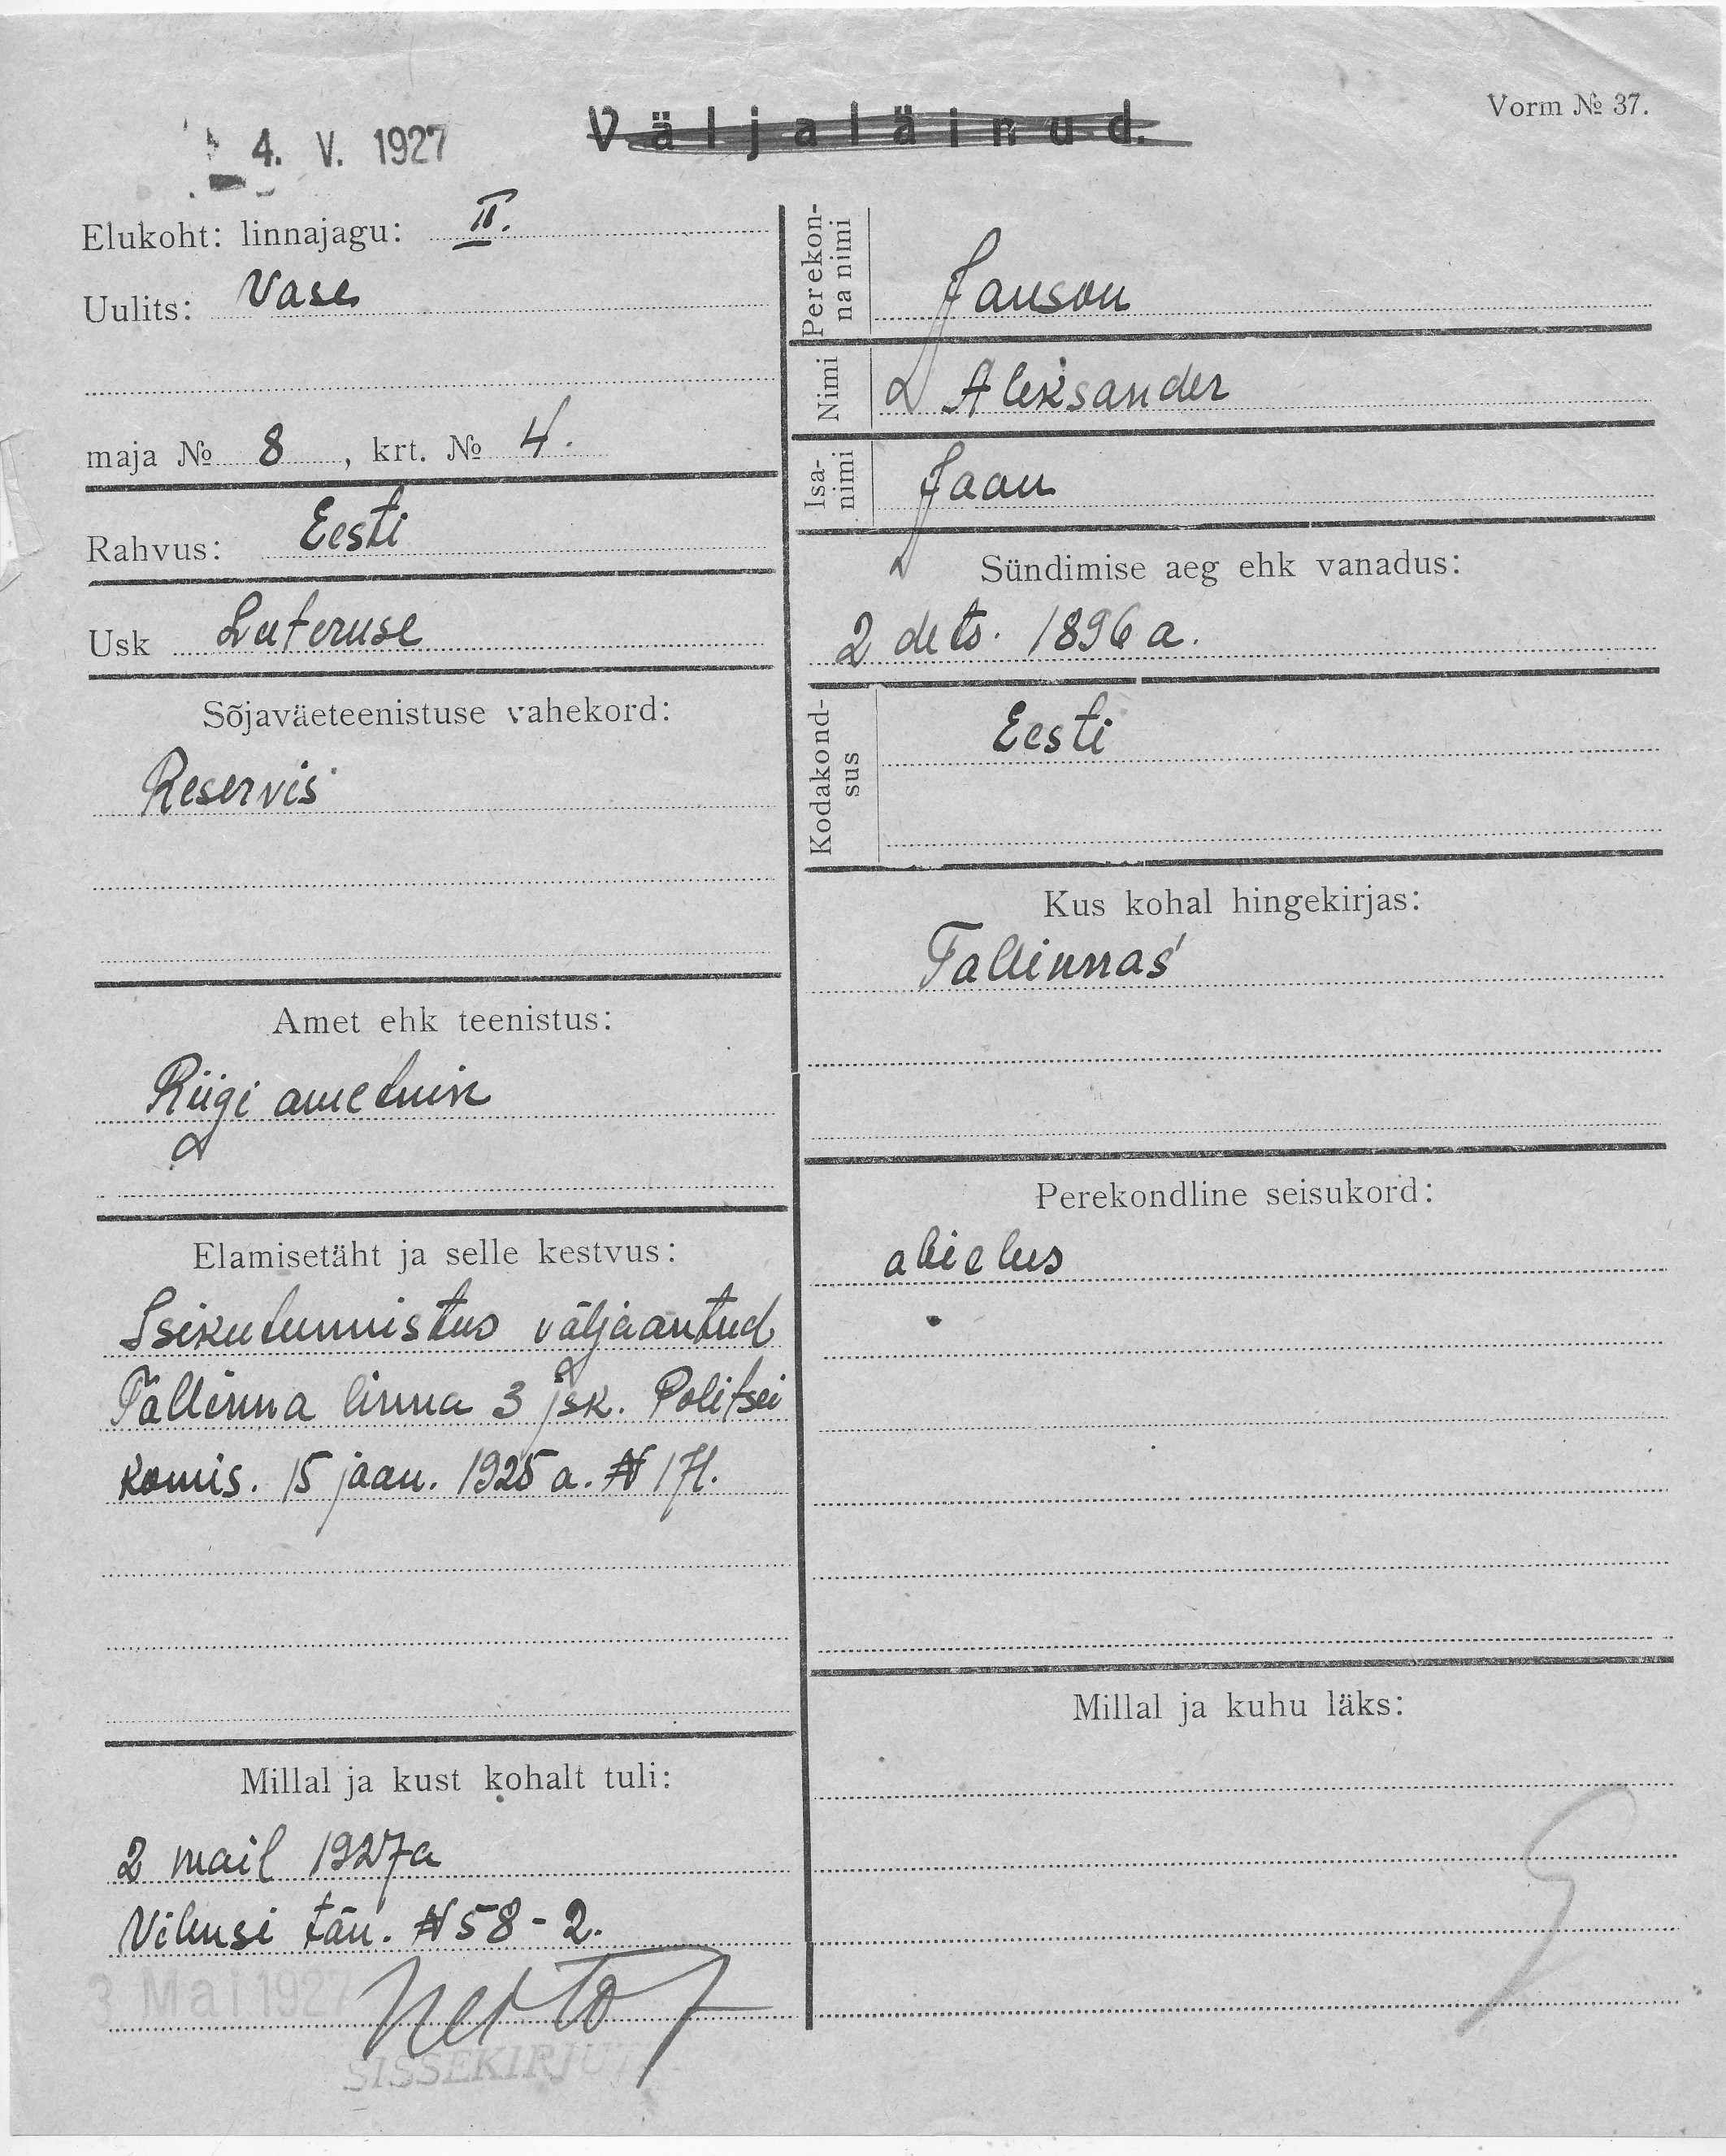 Vorm № 37.
4. V. 1927
Väljaläinud.
Elukoht: linnajagu: II.
Uulits: Vase
maja № 8, krt. № 4.
Rahvus: Eesti
Usk Luteruse
Sõjaväeteenistuse vahekord:
Reservis
Amet ehk teenistus:
Riigi ametnik
Elamisetäht ja selle kestvus:
Isikutunnistus väljaantud
Tallinna linna 3 jsk. Politsei
komis. 15 jaan. 1925 a. № 171.
Millal ja kust kohalt tuli:
2 mail 1927a
Vilmsi tän. № 58-2.
3 Mai 1927
SISSEKIRJUT
Perekon-
na nimi
Janson
Nimi
Aleksander
Isa-
nimi
Jaan
Sündimise aeg ehk vanadus:
2 dets. 1896 a.
Kodakond-
sus
Eesti
Kus kohal hingekirjas:
Tallinnas
Perekondline seisukord:
abielus
Millal ja kuhu läks: